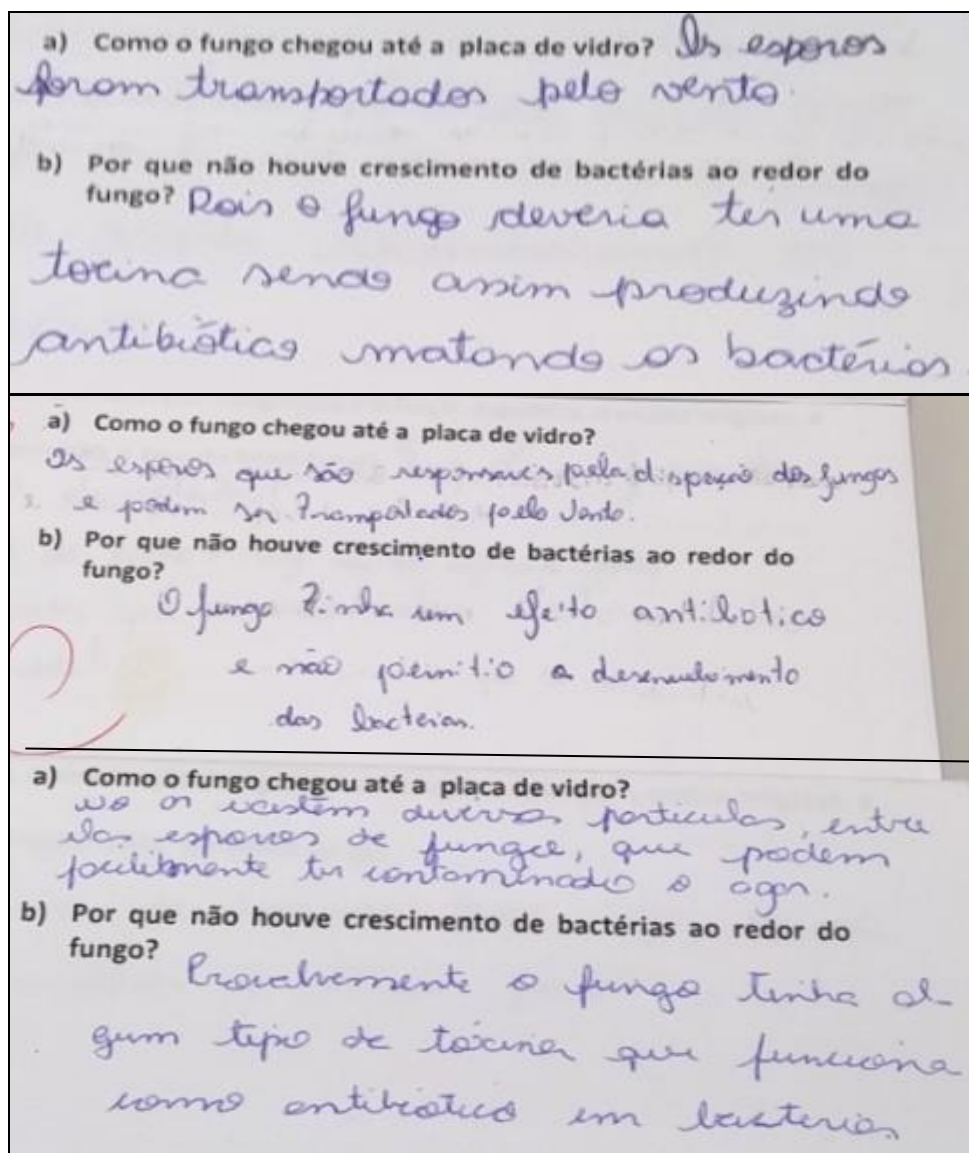 a) Como o fungo chegou até a placa de vidro? Os esporos
foram transportados pelo vento.
b) Por que não houve crescimento de bactérias ao redor do
fungo? Pois o fungo deveria ter uma
toxina sendo assim produzindo
antibiótico matando as bactérias.
a) Como o fungo chegou até a placa de vidro?
Os esporos que são responsaveis pela disperção dos fungos
e podem ser transportados pelo vento.
b) Por que não houve crescimento de bactérias ao redor do
fungo?
O fungo tinha um efeito antibotico
e não permitio a desenvolvimento
das bacterias.
a) Como o fungo chegou até a placa de vidro?
no ar existem diversas particulas, entre
elas esporos de fungos, que podem
facilmente ter contaminado o agar.
b) Por que não houve crescimento de bactérias ao redor do
fungo?
Provavelmente o fungo tinha al-
gum tipo de toxina que funciona
como antibiotico em bacterias